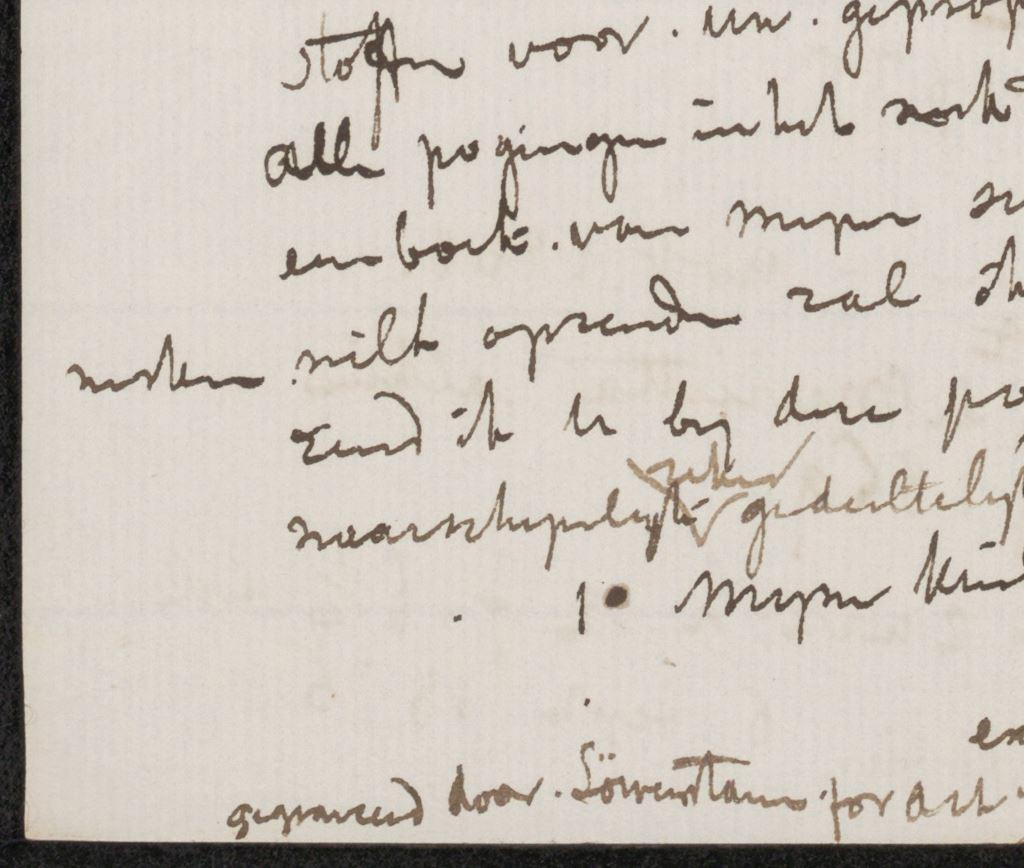 stoffen voor. uw. geprop
Alle pogingen in het werk
een boek. van mijne
wilt opzenden zal ik
moeten
Zend ik U bij deze
waarschijnlijk zeker gedeeltelijk
1 Mijne kin
en
gegraveerd door. Löwenstam. for Art.